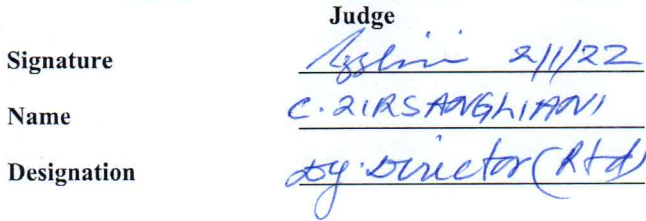 Judge
Signature 2/1/22
Name C. ZIRSANGLIANI
Designation Dy. Director (Rtd)